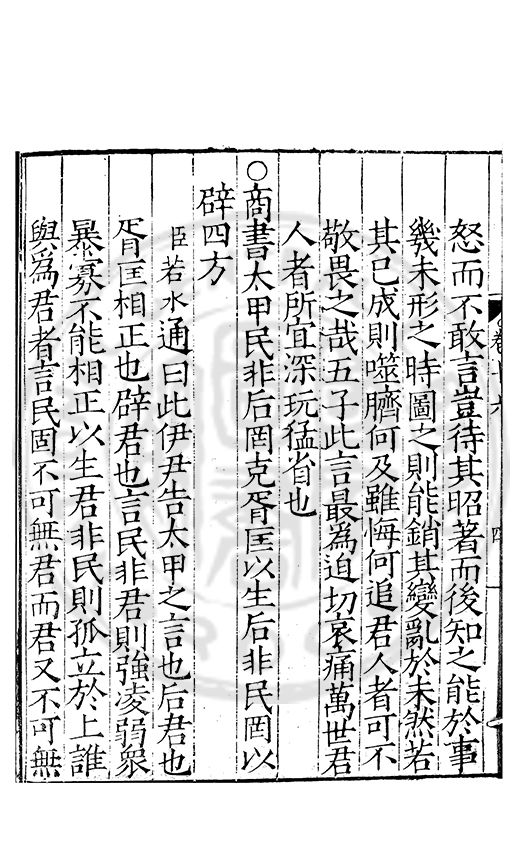 怒而不敢言豈待其昭著而後知之能於事
幾未形之時圖之則能銷其變亂於未然若
其已成則噬臍何及雖悔何追君人者可不
敬畏之哉五子此言最爲迫切哀痛萬世君
人者所宜深玩猛省也
○商書太甲民非后罔克胥匡以生后非民罔以
辟四方
臣若水通曰此伊尹告太甲之言也后君也
胥匡相正也辟君也言民非君則強凌弱衆
暴寡不能相正以生君非民則孤立於上誰
與爲君者言民固不可無君而君又不可無
卷十六
四